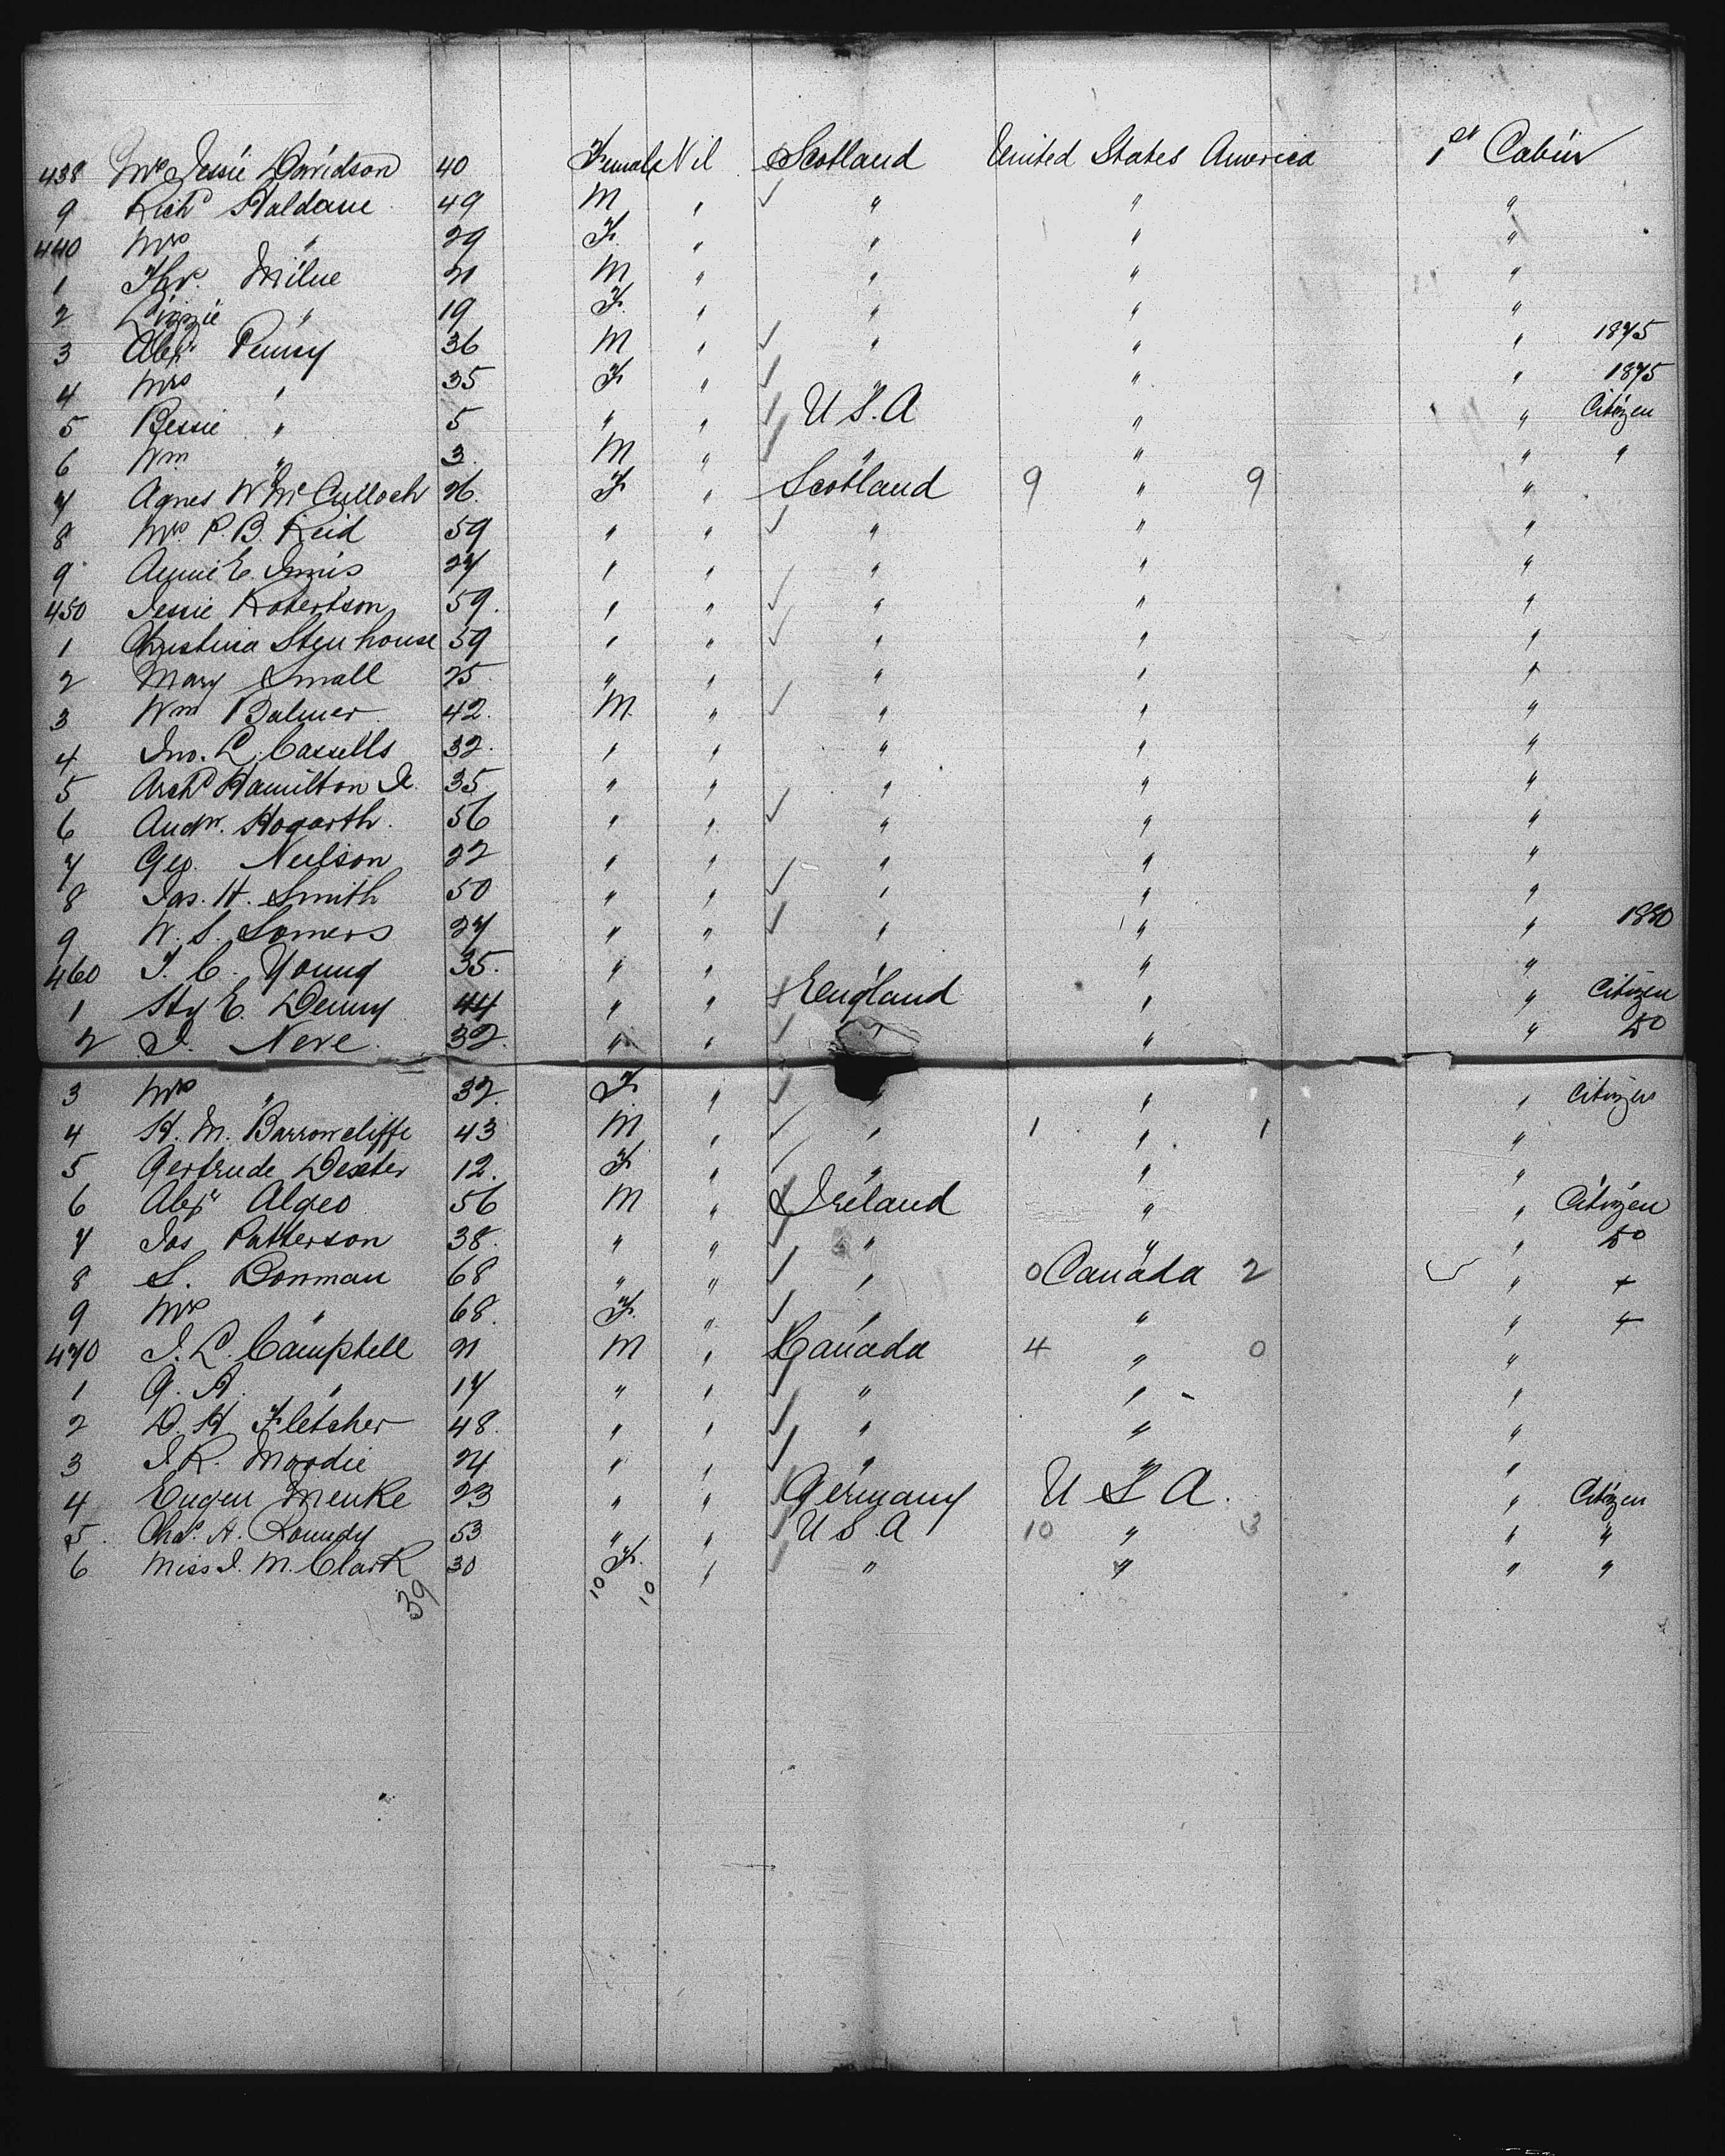 438 Mrs Jessie Davidson 40 Female Nil Scotland United States America 1st Cabin
9 Richd Haldane 49 M " " " "
440 Mrs " 29 F. " " " "
1 Thos. Milne 21 M " " " "
2 Lizzie " 19 F. " " " "
3 Alexr Penny 36 M " " " " 1875
4 Mrs " 35 F " " " " 1875
5 Bessie " 5 " " U.S.A " " Citizen
6 Wm " 3 M " " " " "
7 Agnes W McCulloch 26. F " Scotland 9 " 9 "
8 Mrs. P. B. Reid 59 " " " " "
9 Annie E. Innis 27 " " " " "
450 Jessie Robertson 59. " " " " "
1 Christina Stenhouse 59 " " " " "
2 Mary Small 25 " " " " "
3 Wm Balmer 42. M. " " " "
4 Jno. L. Cassells 32. " " " " "
5 Archd Hamilton Jr. 35 " " " " "
6 Andw. Hogarth. 56 " " " " "
7 Geo. Neilson 22 " " " " "
8 Jas. H. Smith 50 " " " " "
9 W. S. Somers 27 " " " " " 1880
460 T. C. Young 35. " " " " "
1 Hy E. Denny 44 " " England " " Citizen
2 J. Neve. 32. " " " " Do
3 Mrs " 32. F. " " " " Citizen
4 H. M. Barrowcliffe 43 M " " 1 " 1 "
5 Gertrude Dexter 12. F " " " "
6 Alexr Algeo 56 M " Ireland " " Citizen
7 Jas Patterson 38. " " " " " Do
8 S. Bonman 68 " " " 0 Canada 2 " +
9 Mrs " 68. F. " " " " +
470 J. L. Campbell 21 M " Canada 4 " 0 "
1 G. A. " 17 " " " " "
2 D. H. Fletcher 48. " " " " "
3 J. R. Moodie 24 " " " " "
4 Eugen Menke 23 " " Germany U S A. " Citizen
5. Chas. A. Roundy 53 " " U S. A 10 " 3 " "
6 Miss J. M. Clark 30 F. " " " " "
39 10 10